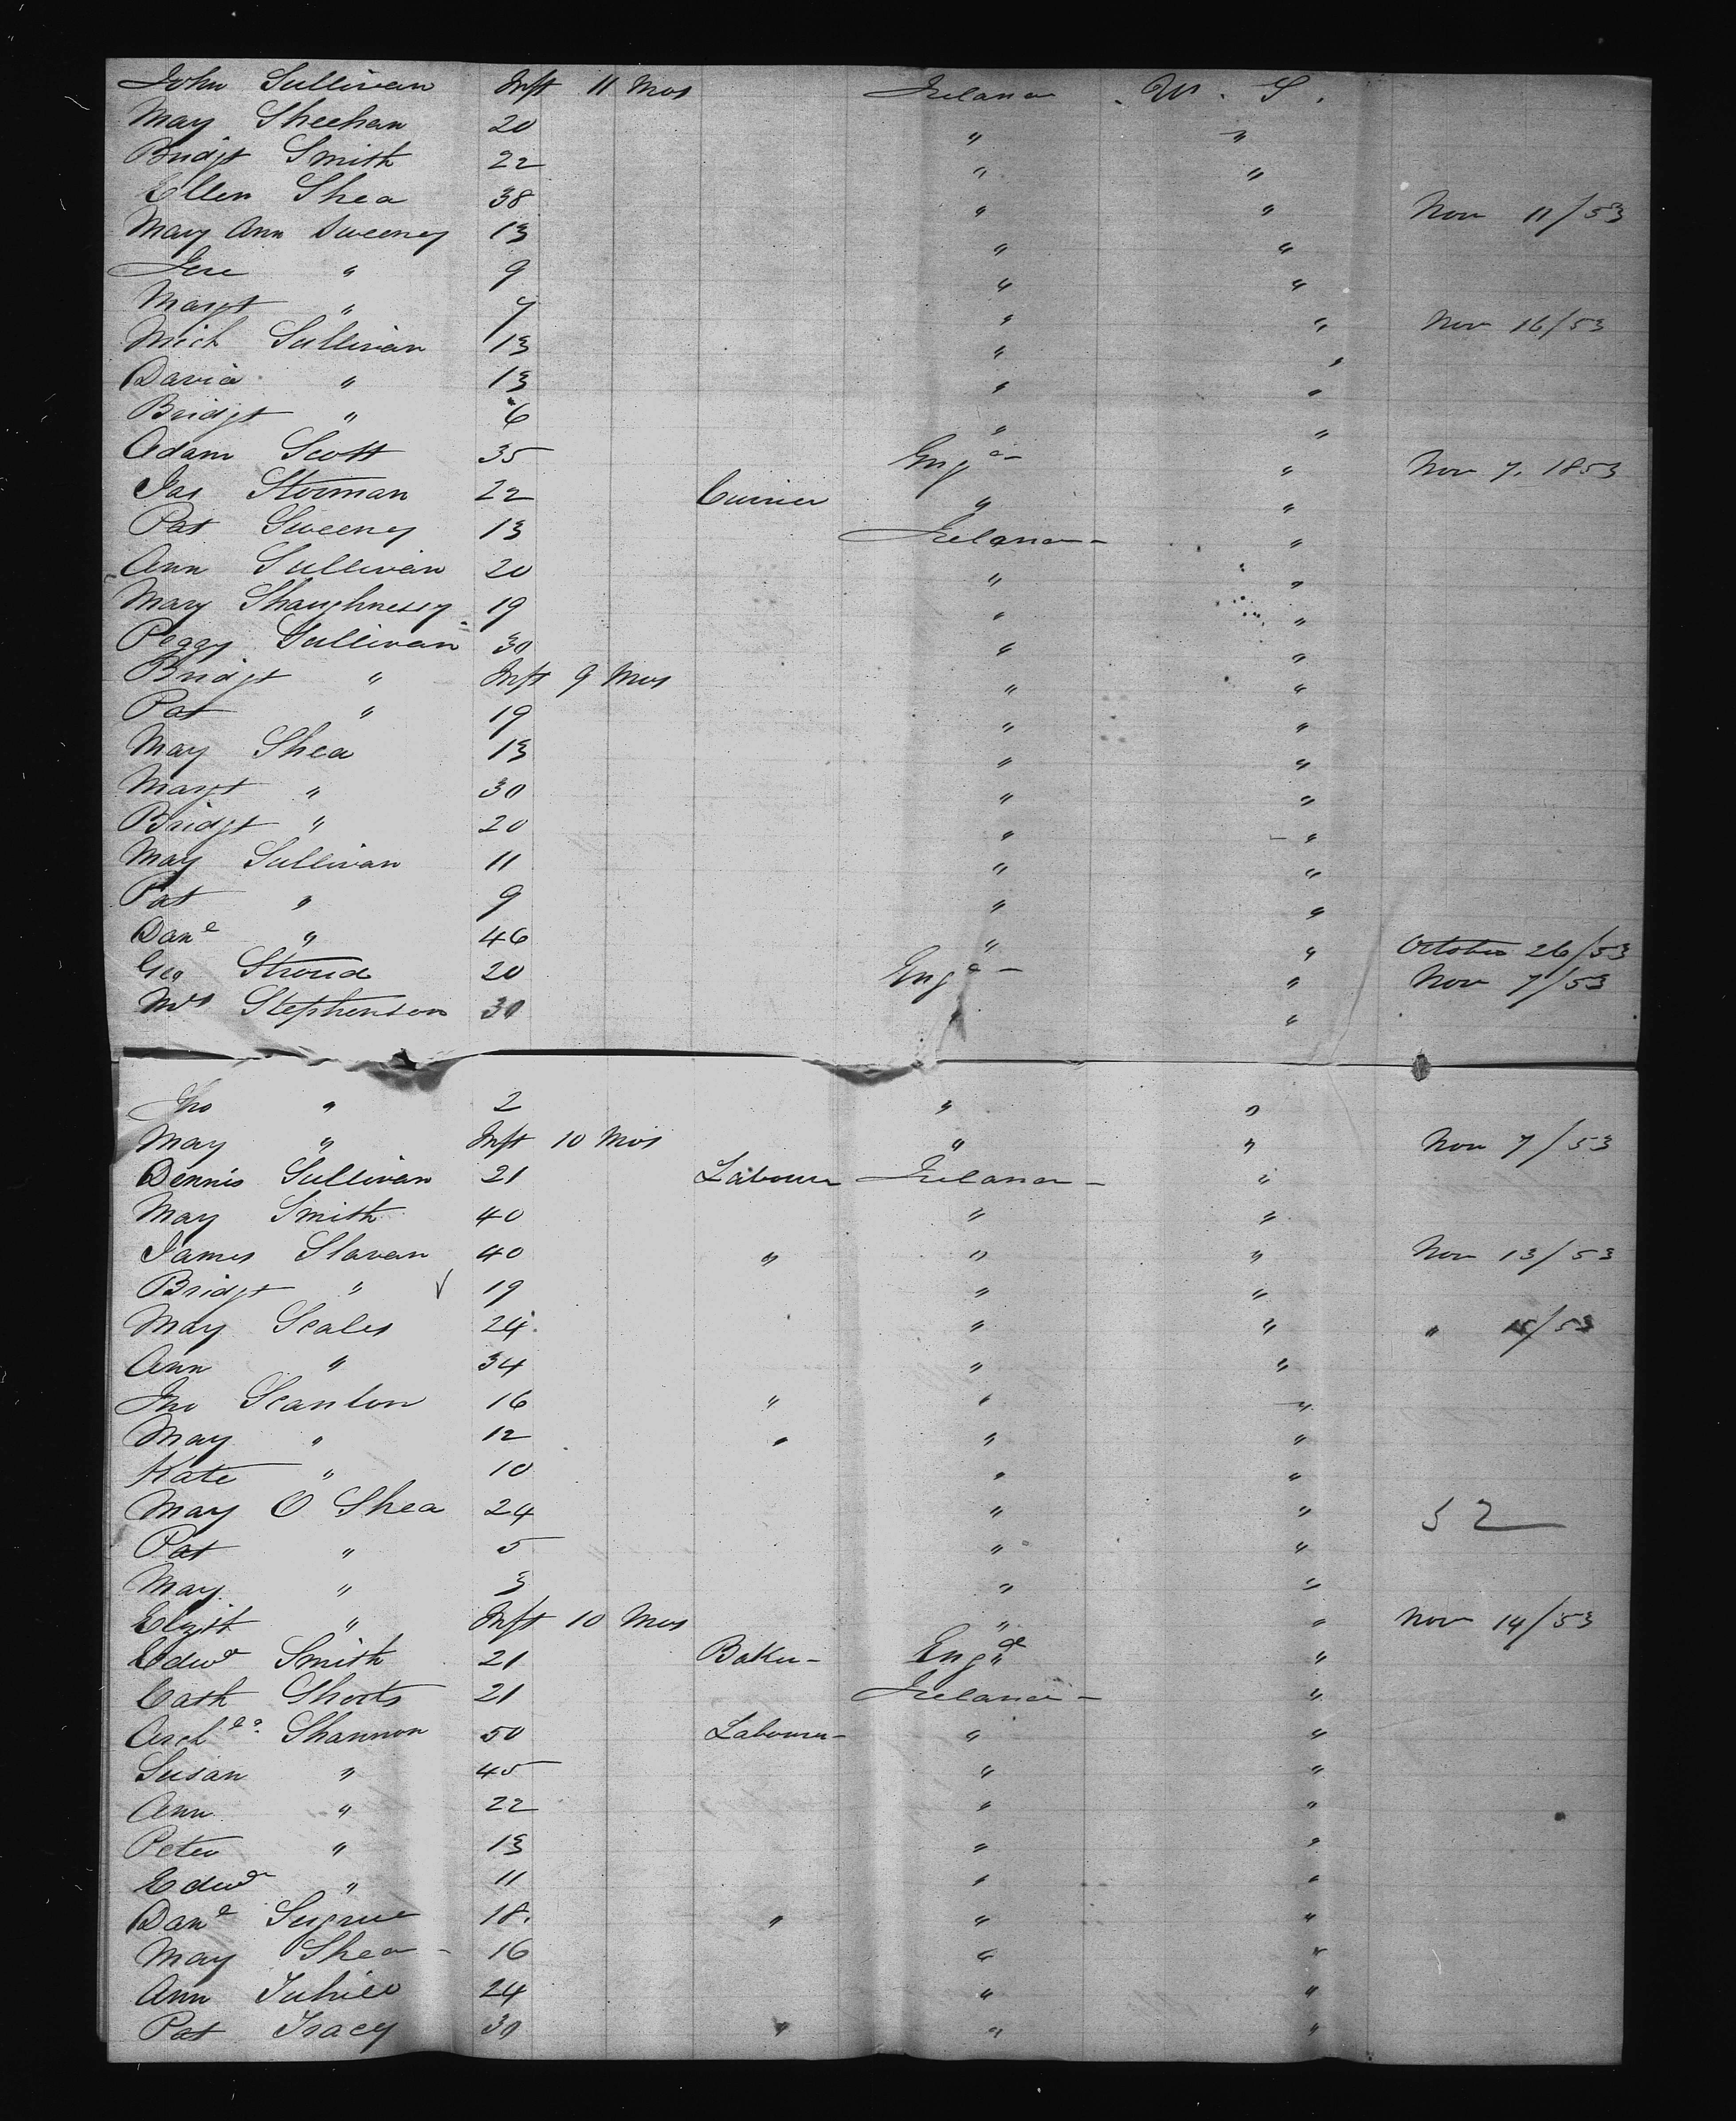 John Sullivan Inft 11 Mos Ireland U. S.
Mary Sheehan 20 " "
Bridgt Smith 22 " "
Ellen Shea 38 " " Nov 11/53
Mary Ann Sweeney 13 " "
Jere " 9 " "
Margt " 7 " " Nov 16/53
Mich Sullivan 13 " "
David " 13 " "
Bridgt " 6 " "
Adam Scott 35 Engd " Nov 7, 1853
Jas Storman 22 Currier " "
Pat Sweeney 13 Ireland "
Ann Sullivan 20 " "
Mary Shaughnessy 19 " "
Peggy Sullivan 30 " "
Bridgt " Inft 9 Mos " "
Pat " 19 " "
Mary Shea 13 " "
Margt " 30 " "
Bridgt " 20 " "
Mary Sullivan 11 " "
Pat " 9 " "
Danl " 46 " " October 26/53
Geo Stroud 20 Engd " Nov 7/53
Mrs Stephenson 30 "
Jno " 2 " "
Mary " Inft 10 Mos " " Nov 7/53
Dennis Sullivan 21 Labourer Ireland "
Mary Smith 40 " "
James Slavan 40 " " " Nov 13/53
Bridgt " 19 " "
Mary Scales 24 " " " /53
Ann " 34 " "
Jno Scanlon 16 " " "
Mary " 12 " " "
Kate " 10 " "
Mary O Shea 24 " " 52
Pat " 5 " "
Mary " 3 " "
Elizth " Inft 10 Mos " " Nov 14/53
Edwd Smith 21 Baker Engd "
Cath Shorts 21 Ireland "
Archd Shannon 50 Labourer " "
Susan " 45 " "
Ann " 22 " "
Peter " 13 " "
Edwd " 11 " "
Danl Sugrue 18 " " "
Mary Shea 16 " "
Ann 24 " "
Pat Tracy 30 " " "